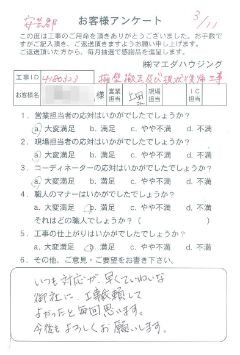 安芸郡
お客様アンケート
3/11
この度は工事のご用命を頂きありがとうございました。お手数で
すがご記入頂き、ご返送頂きますようお願い申し上げます。
ご返送頂いた方から、毎月抽選で感謝品を進呈します。
㈱マエダハウジング
工事ID
お客様名
営業担当
現場担当
1. 営業担当者の対応はいかがでしたでしょうか?
a. 大変満足 b. 満足 c. やや不満 d. 不満
2. 現場担当者の対応はいかがでしたでしょうか?
a. 大変満足 b. 満足 c. やや不満 d. 不満
3. コーディネーターの対応はいかがでしたでしょうか?
a. 大変満足 b. 満足 c. やや不満 d. 不満
4. 職人のマナーはいかがでしたでしょうか?
a. 大変満足 b. 満足 c. やや不満 d. 不満
それはどの職人でしょうか?
5. 工事の仕上がりはいかがでしたでしょうか?
a. 大変満足 b. 満足 c. やや不満 d. 不満
6. その他、ご意見・ご要望をお書き下さい。
いつも対応が早くていねいな
御社に工事依頼して
よかったと毎回思います。
今後もよろしくお願いします。